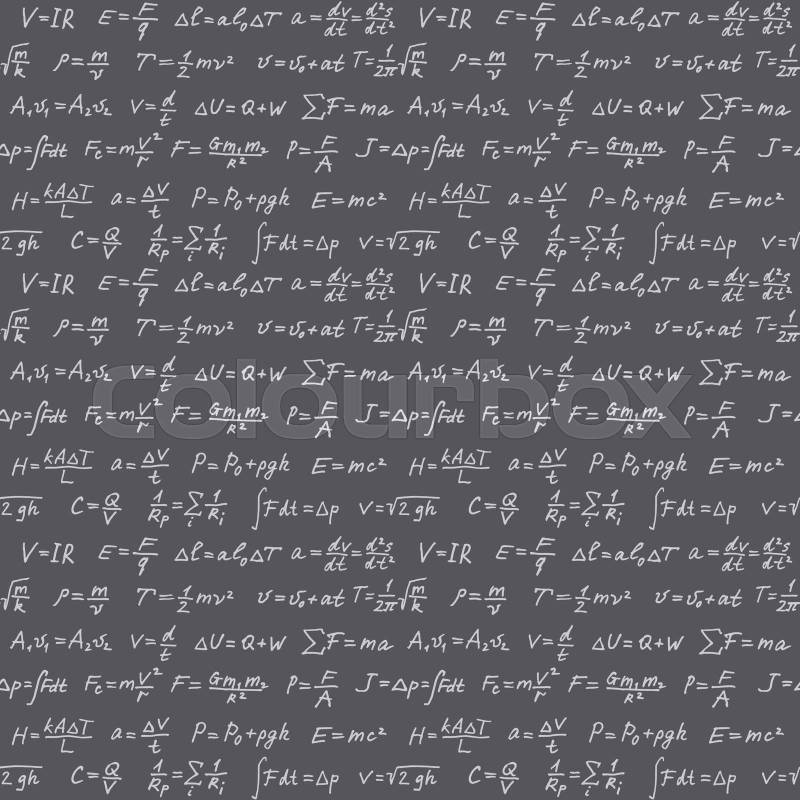 V=IR E=F/q Δl=al₀ΔT a=dv/dt=d²s/dt² V=IR E=F/q Δl=al₀ΔT a=dv/dt=d²s/dt²
√m/k ρ=m/v T=1/2mv² v=v₀+at T=1/2π√m/k ρ=m/v T=1/2mv² v=v₀+at T=1/2π
A₁v₁=A₂v₂ V=d/t ΔU=Q+W ΣF=ma A₁v₁=A₂v₂ V=d/t ΔU=Q+W ΣF=ma
Δp=∫Fdt F_c=mV²/r F=Gm₁m₂/R² P=F/A J=Δp=∫Fdt F_c=mV²/r F=Gm₁m₂/R² P=F/A J=
H=kAΔT/L a=ΔV/t P=P₀+ρgh E=mc² H=kAΔT/L a=ΔV/t P=P₀+ρgh E=mc²
2gh C=Q/V 1/R_p=Σ_i 1/R_i ∫Fdt=Δp v=√2gh C=Q/V 1/R_p=Σ_i 1/R_i ∫Fdt=Δp v=√
V=IR E=F/q Δl=al₀ΔT a=dv/dt=d²s/dt² V=IR E=F/q Δl=al₀ΔT a=dv/dt=d²s/dt²
√m/k ρ=m/v T=1/2mv² v=v₀+at T=1/2π√m/k ρ=m/v T=1/2mv² v=v₀+at T=1/2π
A₁v₁=A₂v₂ V=d/t ΔU=Q+W ΣF=ma A₁v₁=A₂v₂ V=d/t ΔU=Q+W ΣF=ma
colourbox
Δp=∫Fdt F_c=mV²/r F=Gm₁m₂/R² P=F/A J=Δp=∫Fdt F_c=mV²/r F=Gm₁m₂/R² P=F/A J=
H=kAΔT/L a=ΔV/t P=P₀+ρgh E=mc² H=kAΔT/L a=ΔV/t P=P₀+ρgh E=mc²
2gh C=Q/V 1/R_p=Σ_i 1/R_i ∫Fdt=Δp v=√2gh C=Q/V 1/R_p=Σ_i 1/R_i ∫Fdt=Δp v=√
V=IR E=F/q Δl=al₀ΔT a=dv/dt=d²s/dt² V=IR E=F/q Δl=al₀ΔT a=dv/dt=d²s/dt²
√m/k ρ=m/v T=1/2mv² v=v₀+at T=1/2π√m/k ρ=m/v T=1/2mv² v=v₀+at T=1/2π
A₁v₁=A₂v₂ V=d/t ΔU=Q+W ΣF=ma A₁v₁=A₂v₂ V=d/t ΔU=Q+W ΣF=ma
Δp=∫Fdt F_c=mV²/r F=Gm₁m₂/R² P=F/A J=Δp=∫Fdt F_c=mV²/r F=Gm₁m₂/R² P=F/A J=
H=kAΔT/L a=ΔV/t P=P₀+ρgh E=mc² H=kAΔT/L a=ΔV/t P=P₀+ρgh E=mc²
2gh C=Q/V 1/R_p=Σ_i 1/R_i ∫Fdt=Δp v=√2gh C=Q/V 1/R_p=Σ_i 1/R_i ∫Fdt=Δp v=√